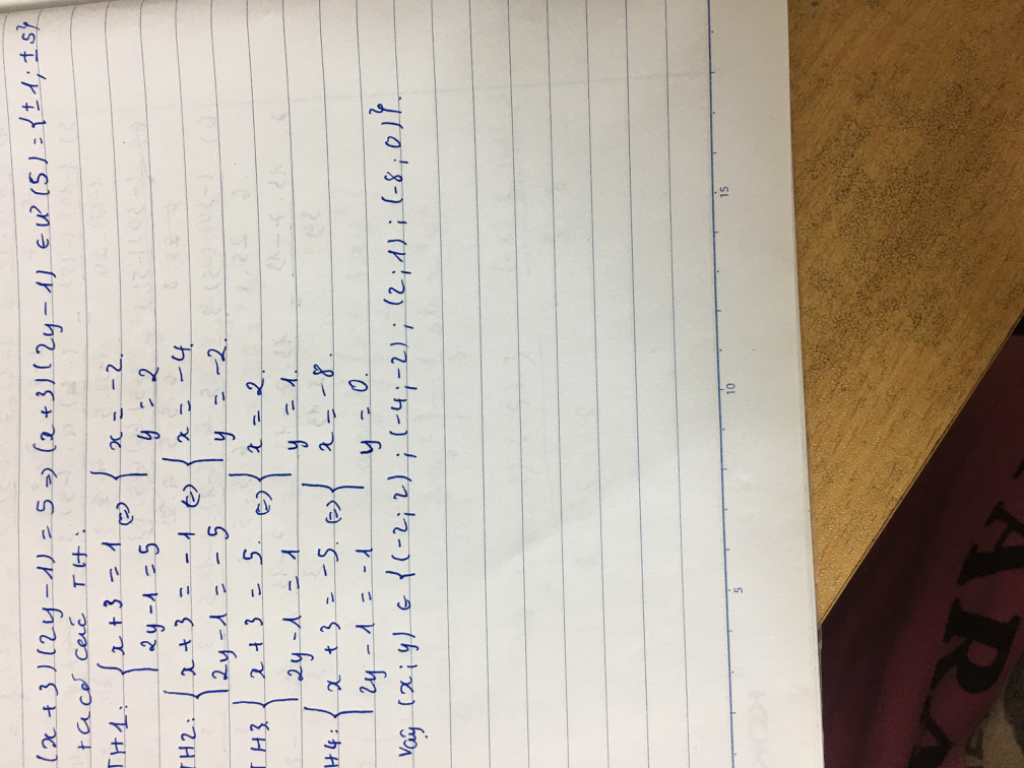 (x+3)(2y-1)=5 => (x+3)(2y-1) ∈ Ư(5) = {±1; ±5}
+ ta có các TH:
TH1: { x+3 = 1 (=) { x = -2.
2y-1 = 5 y = 2
TH2: { x+3 = -1 (=) { x = -4.
2y-1 = -5 y = -2.
TH3 { x+3 = 5. (=) { x = 2.
2y-1 = 1 y = 1.
H4: { x+3 = -5. (=) { x = -8.
2y-1 = -1 y = 0.
Vậy (x;y) ∈ {(-2;2); (-4;-2); (2;1); (-8;0)}.
5 10 15
ARA